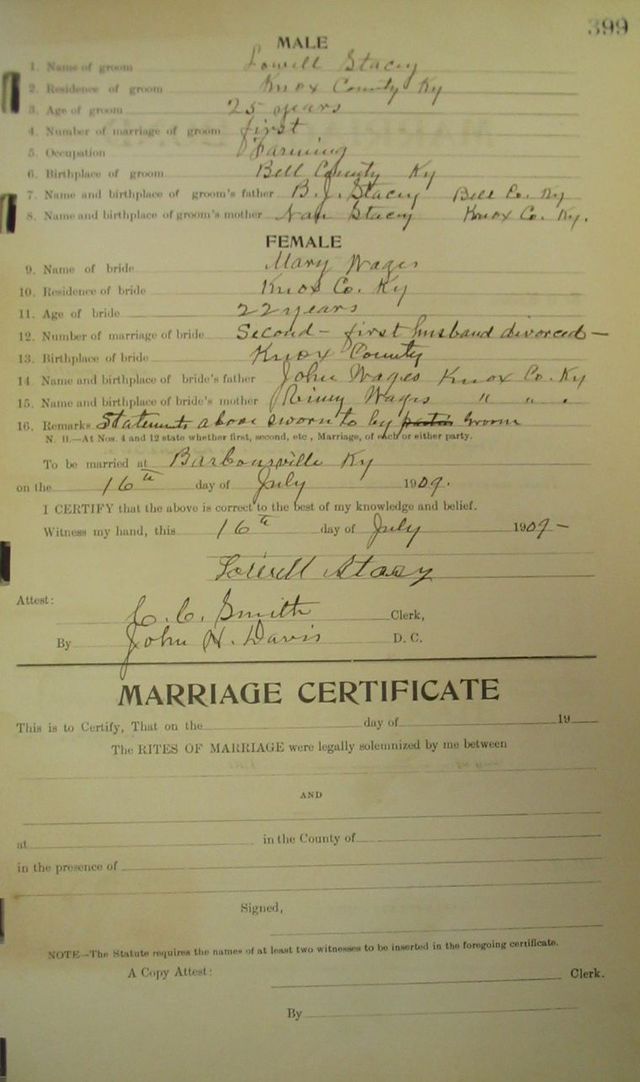 399
MALE
1. Name of groom Lowell Stacey
2. Residence of groom Knox County Ky
3. Age of groom 25 years
4. Number of marriage of groom first
5. Occupation Farming
6. Birthplace of groom Bell County Ky
7. Name and birthplace of groom's father B. J. Stacey Bell Co. Ky
8. Name and birthplace of groom's mother Nan Stacey Knox Co. Ky.
FEMALE
9. Name of bride Mary Wages
10. Residence of bride Knox Co. Ky
11. Age of bride 22 years
12. Number of marriage of bride Second - first husband divorced -
13. Birthplace of bride Knox County
14. Name and birthplace of bride's father John Wages Knox Co. Ky
15. Name and birthplace of bride's mother Wages " " "
16. Remarks Statements above sworn to by Groom
N. B.—At Nos. 4 and 12 state whether first, second, etc., Marriage, of each or either party.
To be married at Barbourville Ky
on the 16th day of July 1909.
I CERTIFY that the above is correct to the best of my knowledge and belief.
Witness my hand, this 16th day of July 1909-
Lowell Stacy
Attest:
C. C. Smith Clerk,
By John H. Davis D. C.
MARRIAGE CERTIFICATE
This is to Certify, That on the day of 19
The RITES OF MARRIAGE were legally solemnized by me between
AND
at in the County of
in the presence of
Signed,
NOTE—The Statute requires the names of at least two witnesses to be inserted in the foregoing certificate.
A Copy Attest: Clerk.
By